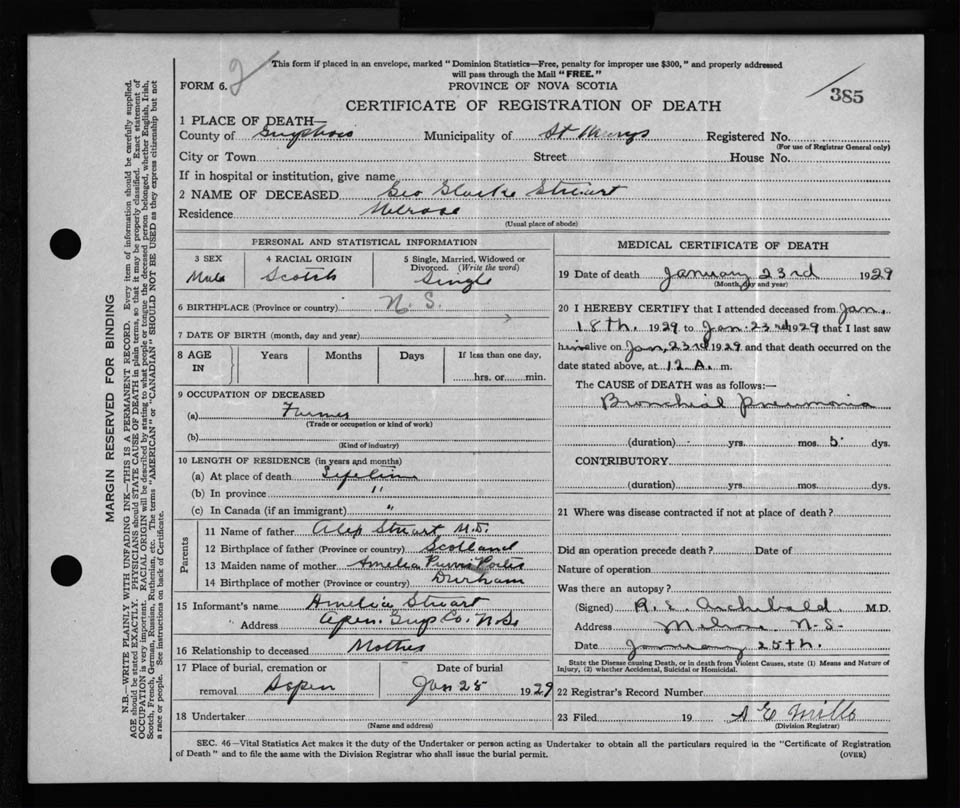 This form if placed in an envelope, marked "Dominion Statistics—Free, penalty for improper use $300," and properly addressed
will pass through the Mail "FREE."
FORM 6. 2
PROVINCE OF NOVA SCOTIA
385
CERTIFICATE OF REGISTRATION OF DEATH
1 PLACE OF DEATH—
County of Municipality of St Marys Registered No.
(For use of Registrar General only)
City or Town Street House No.
If in hospital or institution, give name
2 NAME OF DECEASED Geo Stuart
Residence Melrose
(Usual place of abode)
PERSONAL AND STATISTICAL INFORMATION
3 SEX 4 RACIAL ORIGIN 5 Single, Married, Widowed or
Divorced. (Write the word)
Male Scotch Single
6 BIRTHPLACE (Province or country) N. S.
7 DATE OF BIRTH (month, day and year)
8 AGE IN Years Months Days If less than one day,
hrs. or min.
9 OCCUPATION OF DECEASED
(a) Farmer
(Trade or occupation or kind of work)
(b)
(Kind of industry)
10 LENGTH OF RESIDENCE (in years and months)
(a) At place of death Lifetime
(b) In province "
(c) In Canada (if an immigrant) "
Parents
11 Name of father Alex Stuart M.D.
12 Birthplace of father (Province or country) Scotland
13 Maiden name of mother Amelia
14 Birthplace of mother (Province or country) Durham
15 Informant's name Amelia Stuart
" Address Co. N.S.
16 Relationship to deceased Mother
17 Place of burial, cremation or Date of burial
removal Aspen Jan 25 1929
18 Undertaker
(Name and address)
MEDICAL CERTIFICATE OF DEATH
19 Date of death January 23rd 1929
(Month, day and year)
20 I HEREBY CERTIFY that I attended deceased from Jan.
18th. 1929 to Jan. 23rd 1929 that I last saw
him alive on Jan, 23rd 1929 and that death occurred on the
date stated above, at 12 A. m.
The CAUSE of DEATH was as follows:—
Bronchial pneumonia
(duration) yrs. mos 5 dys.
CONTRIBUTORY
(duration) yrs. mos. dys.
21 Where was disease contracted if not at place of death?
Did an operation precede death? Date of
Nature of operation
Was there an autopsy?
(Signed) R. E. Archibald M.D.
Address N-S-
Date January 25th.
State the Disease causing Death, or in death from Violent Causes, state (1) Means and Nature of
Injury, (2) whether Accidental, Suicidal or Homicidal.
22 Registrar's Record Number
23 Filed 19 A E Mills
(Division Registrar)
SEC. 46—Vital Statistics Act makes it the duty of the Undertaker or person acting as Undertaker to obtain all the particulars required in the "Certificate of Registration
of Death" and to file the same with the Division Registrar who shall issue the burial permit.
(OVER)
MARGIN RESERVED FOR BINDING
N.B.—WRITE PLAINLY WITH UNFADING INK—THIS IS A PERMANENT RECORD. Every item of information should be carefully supplied.
AGE should be stated EXACTLY. PHYSICIANS should STATE CAUSE OF DEATH in plain terms, so that it may be properly classified. Exact statement of
OCCUPATION is very important. RACIAL ORIGIN will be described by stating to what people or tongue the deceased person belonged, whether English, Irish,
Scotch, French, German, Russian, Ruthenian, etc. The terms "AMERICAN" or "CANADIAN" SHOULD NOT BE USED as they express citizenship but not
a race or people. See instructions on back of Certificate.